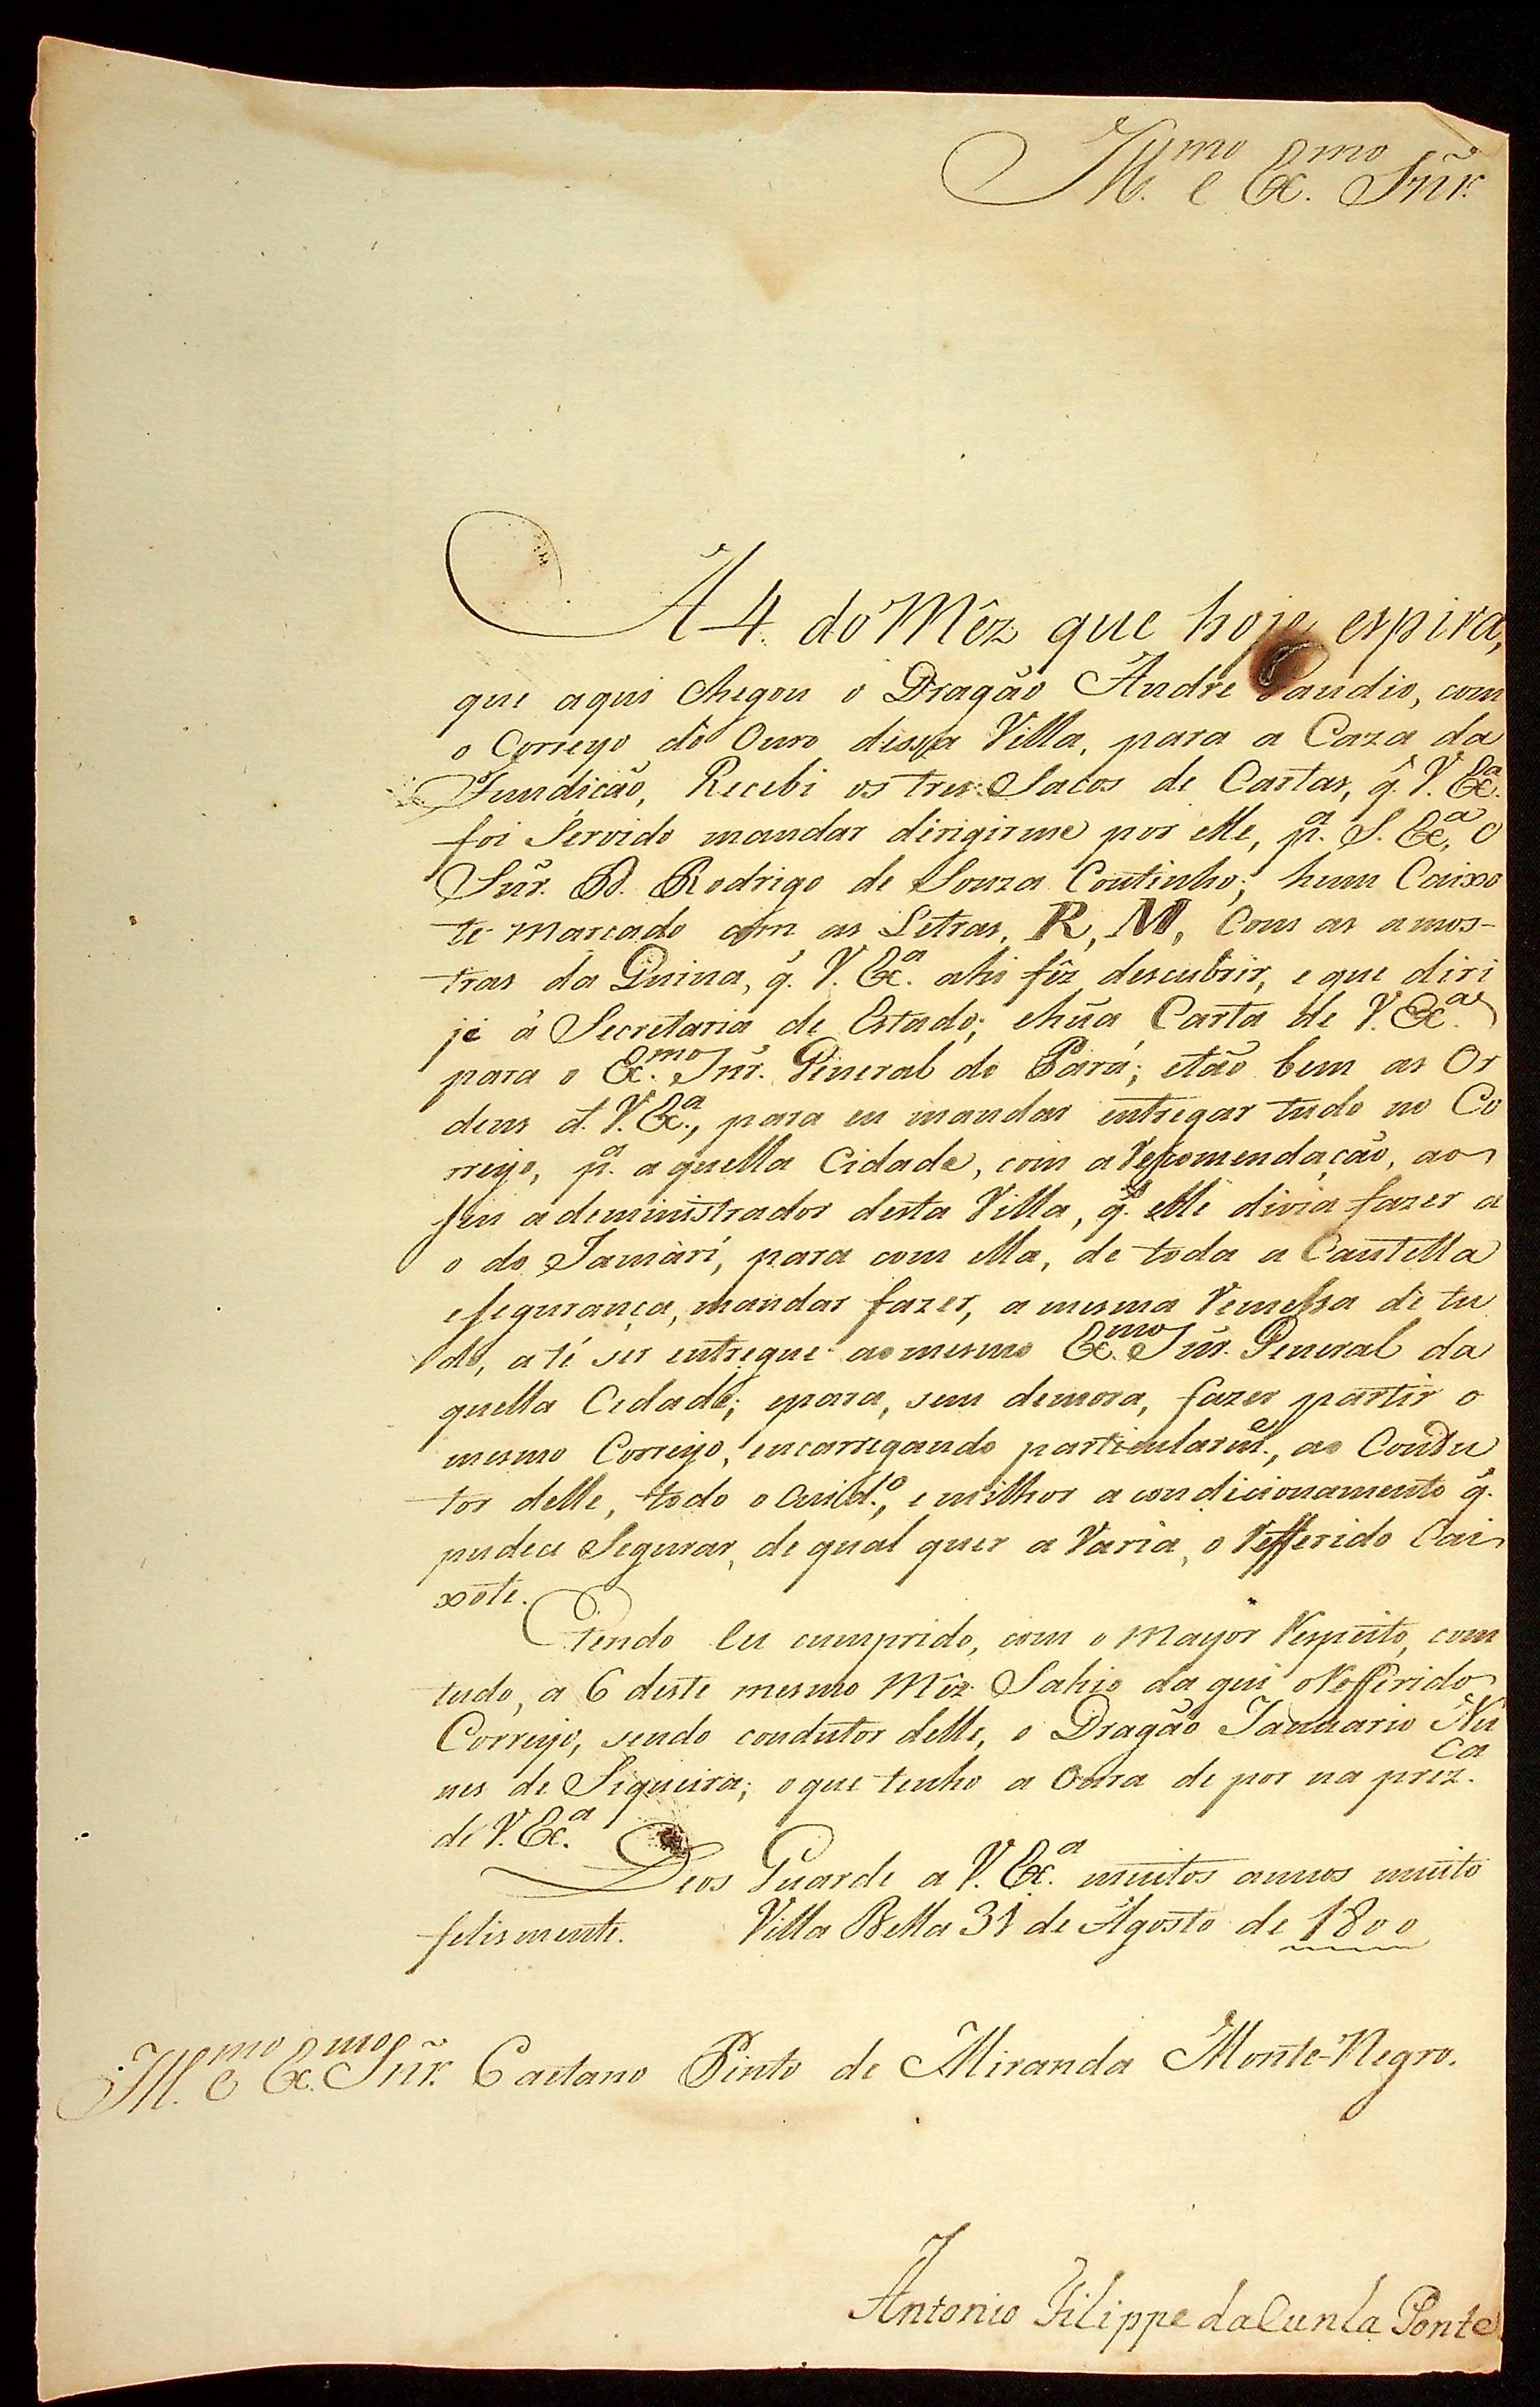 Ill.mo e Ex.mo Snr.
A 4. do Mêz que hoje espira,
que aqui chegou o Dragão Andre Gaudio, com
o Correyo do Ouro dessa Villa, para a Caza da
Fundicão, Recebi os tres Sacos de Cartas, q̃. V. Ex.a
foi Servido mandar dirigirme por elle, p.a S. Ex.a, O
Snr. D. Rodrigo de Souza Coutinho; hum Caixo
te marcado com as Letras, R, M, Com as amos-
tras da Quina, q̃. V. Ex.a ahi fêz descubrir, e que diri
je à Secretaria de Estado; ehũa Carta de V. Ex.a
para o Ex.mo Snr. General do Pará; etão bem as Or
dens d. V. Ex.a, para eu mandar entregar tudo no Co
rreyo, p.a aquella Cidade, com a Recomendacão, ao
seu administrador desta Villa, q̃. elle divia fazer a
o do Jamàri, para com ella, de toda a Cautella
esegurança, mandar fazer, a mesma Remessa de tu
do, até ser entregue ao mesmo Ex.mo Snr. General da
quella Cidade; epara, sem demora, fazer partir o
mesmo Correyo, encarregando particularm.e, ao Condu
tor delle, todo o Cuid.o, e milhor acondicionamento q̃.
pudece Segurar, de qual quer a Varia, o Refferido Cai
xote.
Tendo Eu cumprido, com o mayor Respeito, com
tudo, a 6 deste mesmo Mêz Sahio daqui o Refferido
Correyo, sendo condutor delle, o Dragão Januario Nu
nes de Siqueira; oque tenho a Onra de por na prez.ca
de V. Ex.a
Deos Guarde a V. Ex.a muitos annos muito
felismente. Villa Bella 31 de Agosto de 1800
Ill.mo e Ex.mo Snr. Caetano Pinto de Miranda Monte-Negro.
Antonio Filippe da Cunha Ponte